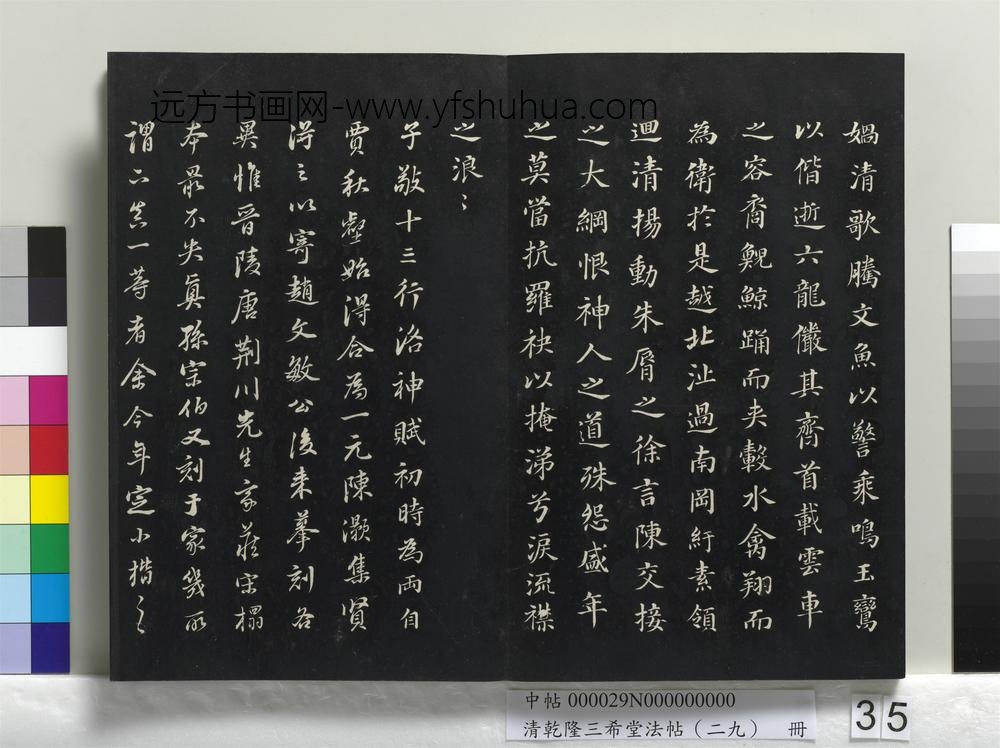 远方书画网-www.yfshuhua.com
媧清歌騰文魚以警乘鳴玉鸞
以偕逝六龍儼其齊首載雲車
之容裔鯢鯨踊而夾轂水禽翔而
為衛於是越北沚過南岡紆素領
迴清揚動朱脣之徐言陳交接
之大綱恨神人之道殊怨盛年
之莫當抗羅袂以掩涕兮淚流襟
之浪〻
子敬十三行洛神賦初時為兩自
賈秋壑始得合為一元陳灝集賢
得之以寄趙文敏公後来摹刻各
異惟晉陵唐荊川先生家藏宋榻
本最不失真孫宗伯又刻于家幾所
謂下真一等者余今年定小楷之
中帖 000029N000000000
清乾隆三希堂法帖（二九） 冊
35